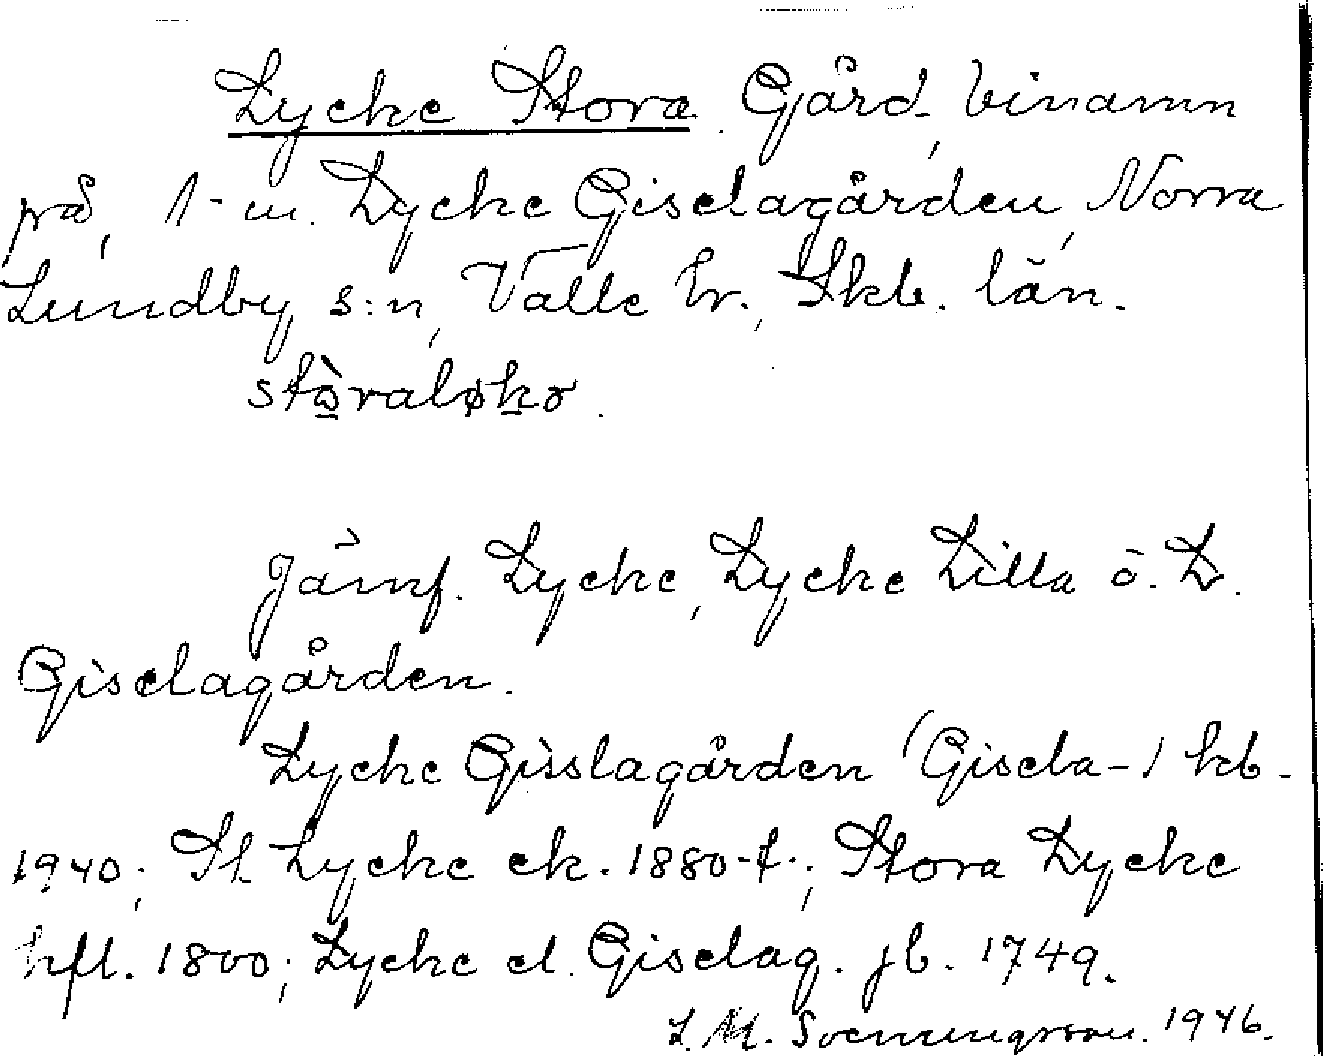 Lycke Stora. Gård, binamn
på, 1 m. Lycke Giselagården, Norra
Lundby s:n, Valle hr., Skb. län.
stɷ̀raløkə.
Jämf. Lycke, Lycke Lilla o. L.
Giselagården.
Lycke Gisslagården (Gisela-) kb.
1940; St. Lycke ek. 1880-t.; Stora Lycke
hfl. 1800; Lycke el. Giselag. jb. 1749.
L. M. Svenungsson. 1946.